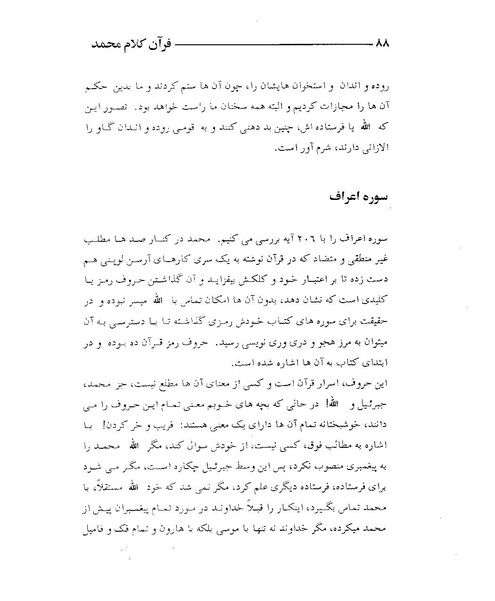 ۸۸ ——— قرآن کلام محمد
روده و اندان و استخوان هایشان را، چون آن ها ستم کردند و ما بدین حکم
آن ها را مجازات کردیم و البته همه سخنان ما راست خواهد بود. تصور این
که الله یا فرستاده اش، چنین بد دهنی کنند و به قومی روده و اندان گاو را
الازانی دارند، شرم آور است.
سوره اعراف
سوره اعراف را با ۲۰۶ آیه بررسی می کنیم. محمد در کنار صد ها مطلب
غیر منطقی و متضاد که در قرآن نوشته به یک سری کارهای آرسن لوپنی هم
دست زده تا بر اعتبار خود و کلکش بیفزاید و آن گذاشتن حروف رمز یا
کلیدی است که نشان دهد، بدون آن ها امکان تماس با الله میسر نبوده و در
حقیقت برای سوره های کتاب خودش رمزی گذاشته تا با دسترسی به آن
میتوان به مرز هجو و دری وری نویسی رسید. حروف رمز قرآن ده بوده و در
ابتدای کتاب به آن ها اشاره شده است.
این حروف، اسرار قرآن است و کسی از معنای آن ها مطلع نیست، جز محمد،
جبرئیل و الله! در حالی که بچه های خوبم معنی تمام این حروف را می
دانند، خوشبختانه تمام آن ها دارای یک معنی هستند: فریب و خر کردن! با
اشاره به مطالب فوق، کسی نیست، از خودش سوال کند، مگر الله محمد را
به پیغمبری منصوب نکرد، پس این وسط جبرئیل چکاره است، مگر می شود
برای فرستاده، فرستاده دیگری علم کرد، مگر نمی شد که خود الله مستقلاً، با
محمد تماس بگیرد، اینکار را قبلاً خداوند در مورد تمام پیغمبران پیش از
محمد میکرده، مگر خداوند نه تنها با موسی بلکه با هارون و تمام فک و فامیل